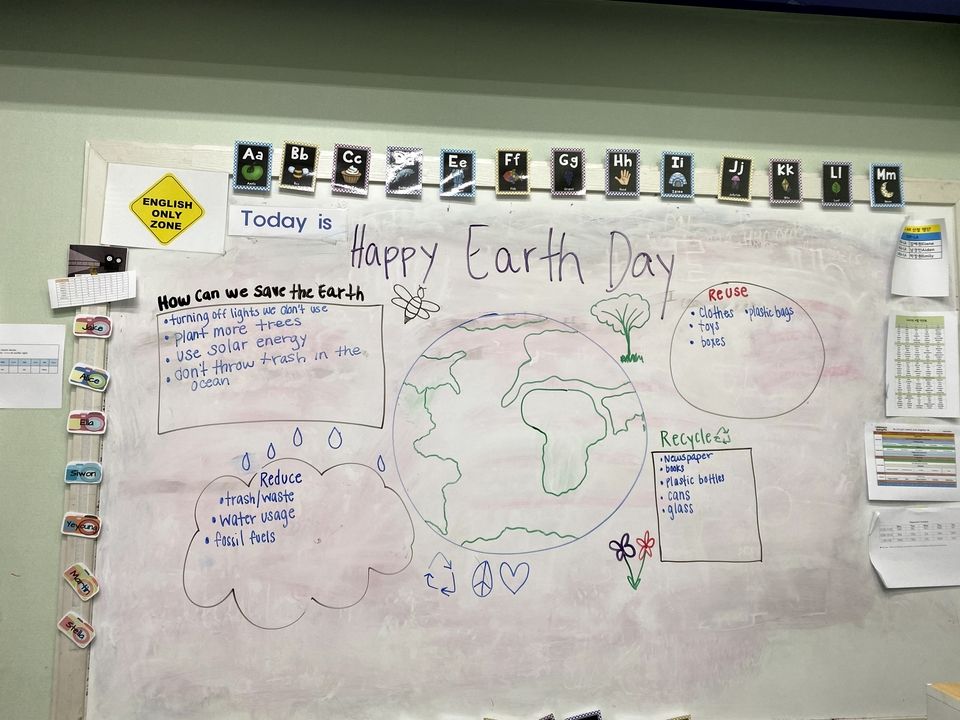 Aa
Bb
Cc
Dd
Ee
Ff
Gg
Hh
Ii
Jj
Kk
Ll
Mm
ENGLISH
ONLY
ZONE
Today is
Happy Earth Day
How Can we save the Earth
• turning off lights we don't use
• plant more trees
• use solar energy
• don't throw trash in the
ocean
Reuse
• Clothes • plastic bags
• toys
• boxes
Reduce
• trash/waste
• water usage
• fossil fuels
Recycle
• Newspaper
• books
• plastic bottles
• cans
• glass
Jake
Alice
Ella
Siwon
Yeyoung
Martin
Stella